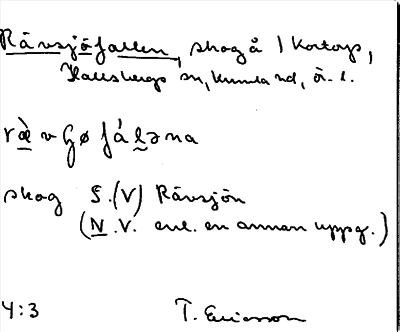 Rävsjöfallen, skog å 1 Kortorp,
Hallsbergs sn, Kumla hd, Ö. l.
rævɧøfáləna
skog S.(V) Rävsjön
(N.V. enl. en annan uppg.)
4:3 T. Ericsson